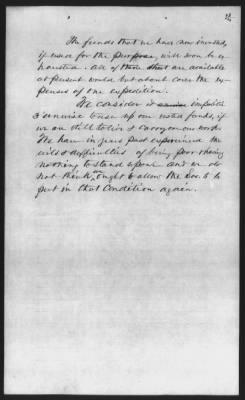 The funds that we have now invested,
if used for the purpose, will soon be ex-
hausted. All of those that are available
at present would but about cover the ex-
penses of one expedition.
We consider it impolitic
& unwise to use up our vested funds, if
we are still to live & carry on our work.
We have in years past experienced the
evils & difficulties of being poor & having
nothing to stand upon and we do
not think we ought to allow the Soc. to be
put in that Condition again.